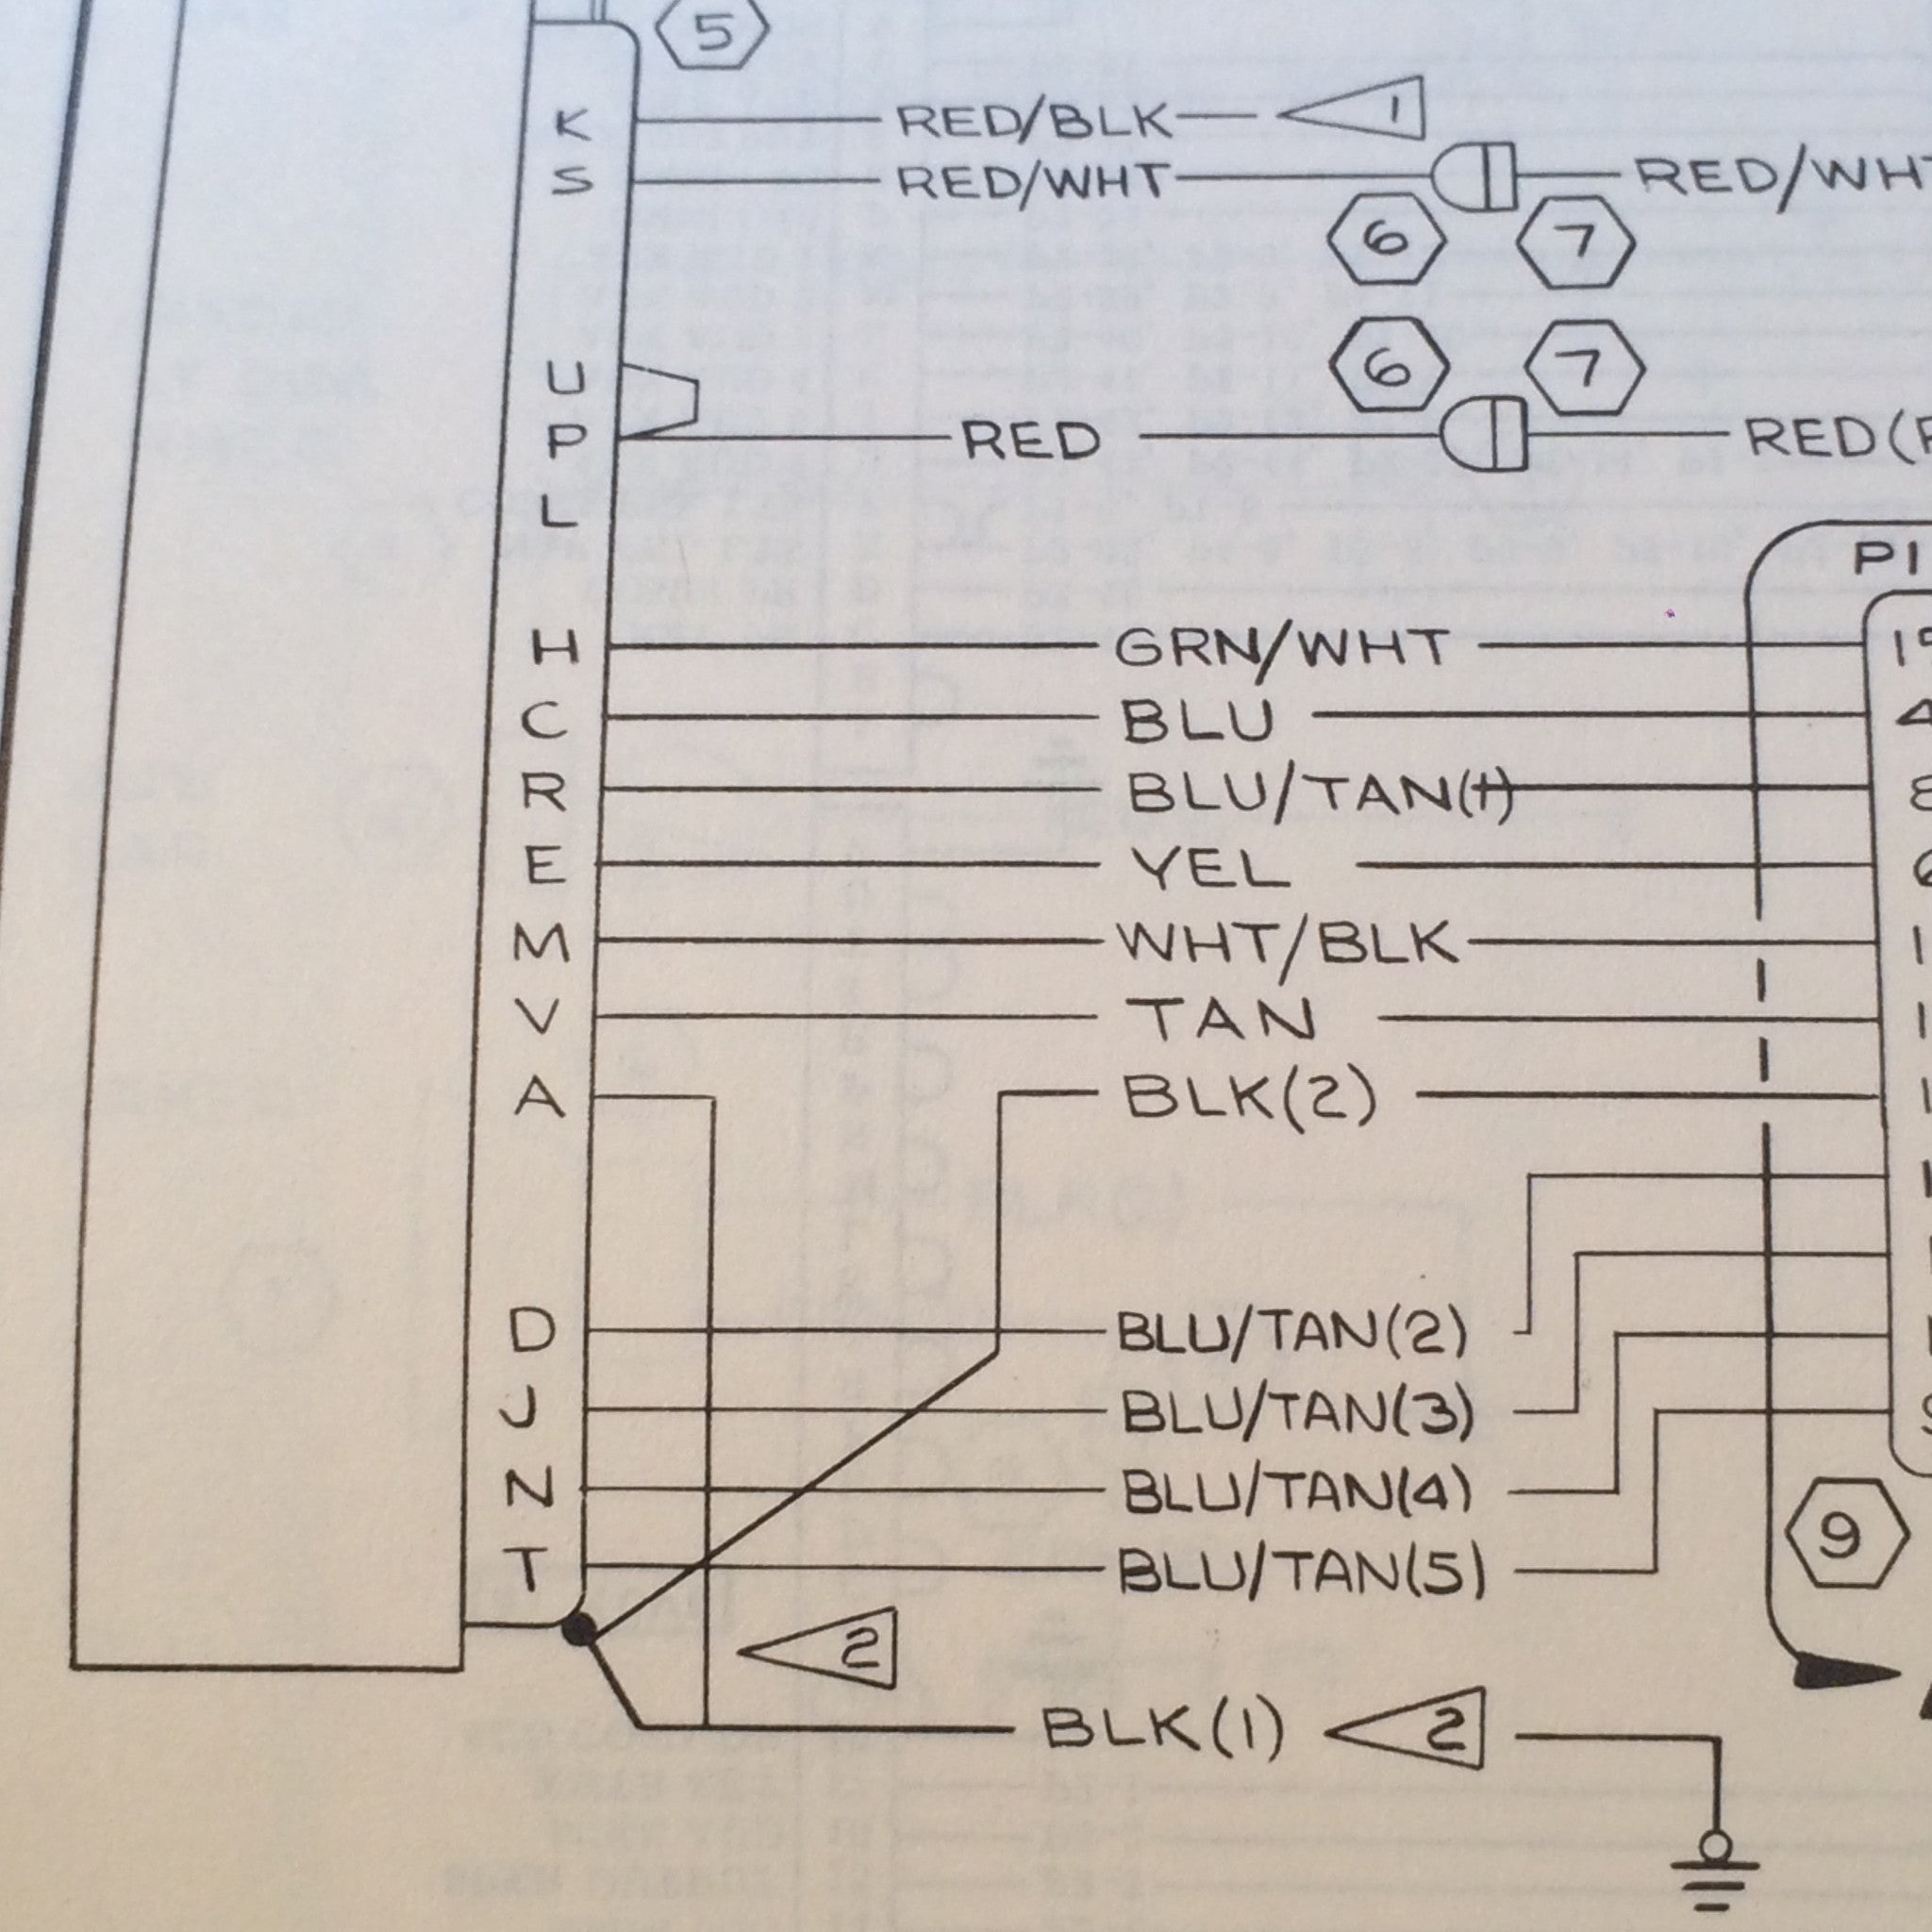 5
K RED/BLK 1
S RED/WHT
6 7
6 7
U
P RED
L
P1
H GRN/WHT
C BLU 4
R BLU/TAN(1) 8
E YEL 6
M WHT/BLK
V TAN
A BLK(2)
D BLU/TAN(2)
J BLU/TAN(3)
N BLU/TAN(4)
T BLU/TAN(5)
9
2
BLK(1) 2